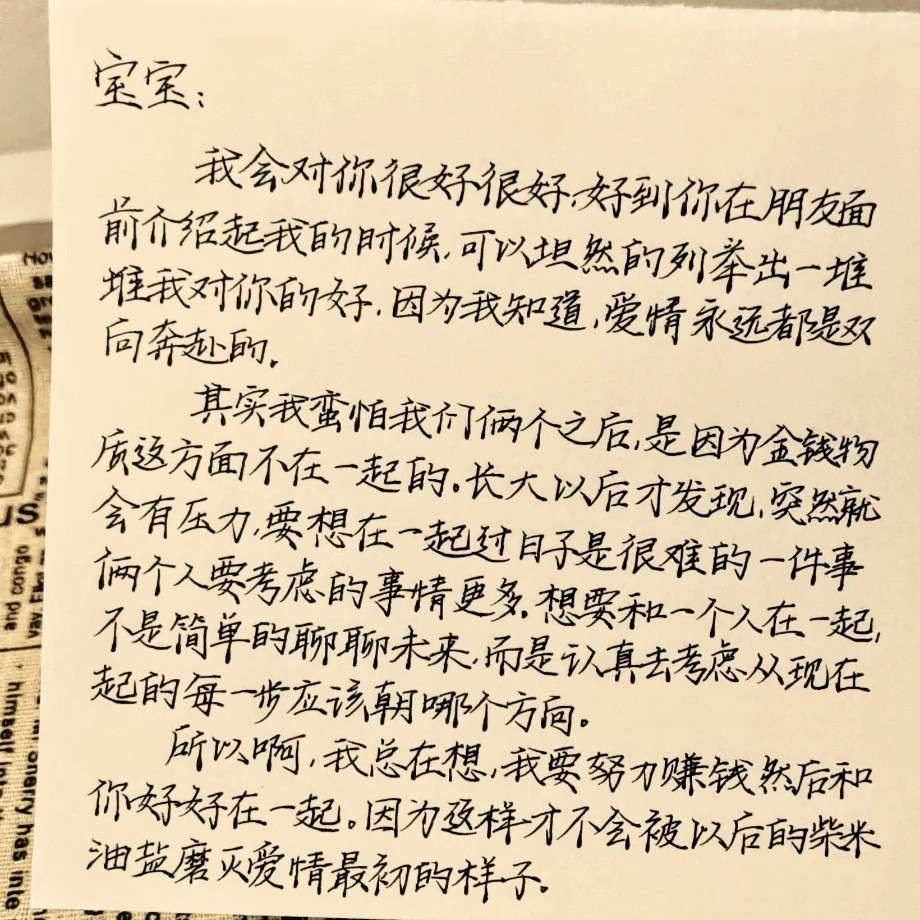 宝宝：
我会对你很好很好，好到你在朋友面
前介绍起我的时候，可以坦然的列举出一堆
堆我对你的好，因为我知道，爱情永远都是双
向奔赴的。
其实我蛮怕我们俩个之后，是因为金钱物
质这方面不在一起的。长大以后才发现，突然就
会有压力，要想在一起过日子是很难的一件事
俩个人要考虑的事情更多。想要和一个人在一起，
不是简单的聊聊未来，而是认真去考虑从现在
起的每一步应该朝哪个方向。
所以啊，我总在想，我要努力赚钱然后和
你好好在一起。因为这样才不会被以后的柴米
油盐磨灭爱情最初的样子。
himself
has inte